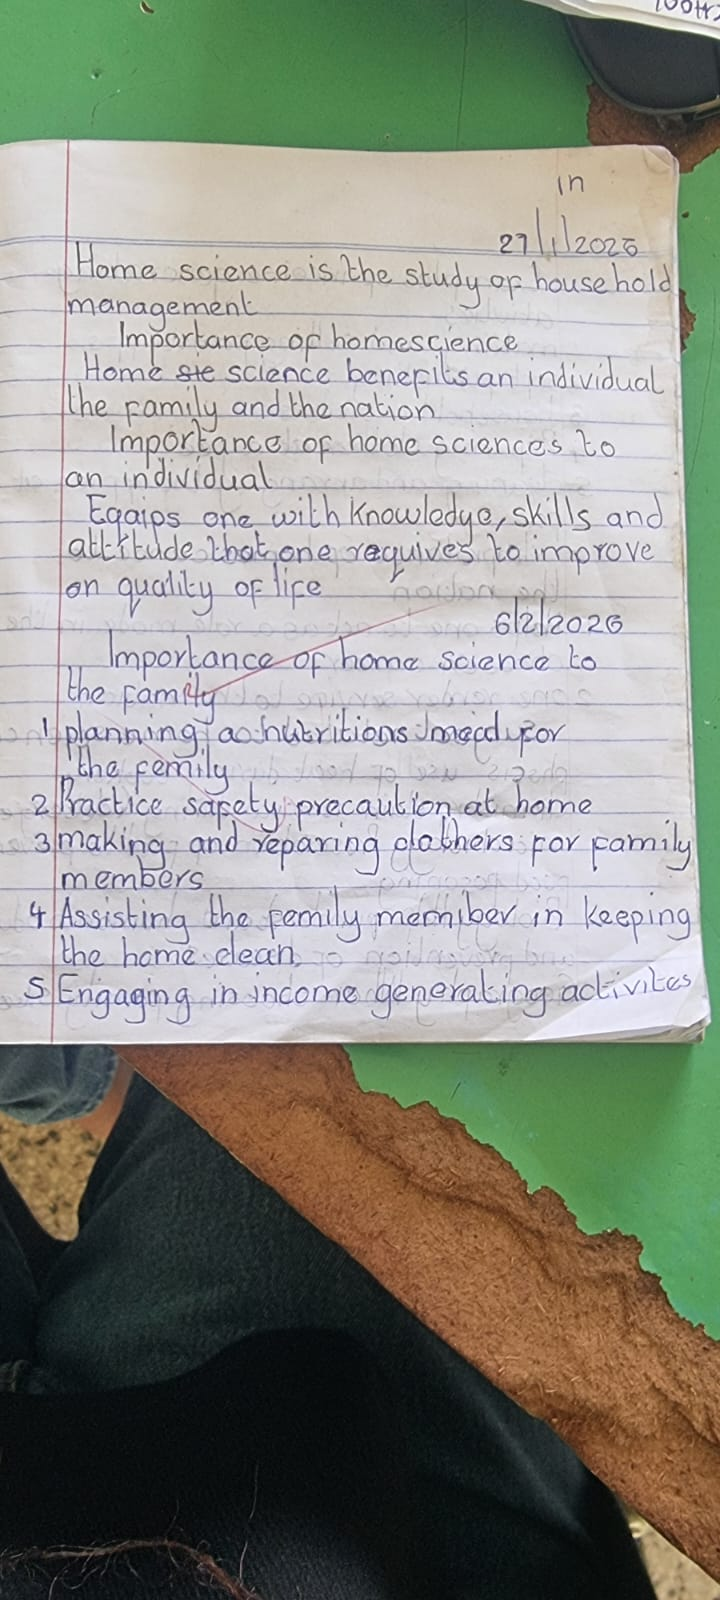 in
27/1/2026
Home science is the study of household
management
Importance of homescience
Home ste science benefits an individual
the family and the nation
Importance of home sciences to
an individual
Eqaips one with knowledge, skills and
attitude that one requives to improve
on quality of life
6/2/2026
Importance of home science to
the family
1 planning a nutritions for
the femily
2 Practice safety precaution at home
3 making and reparing clothers for family
members
4 Assisting the femily memiber in keeping
the home clean,
5 Engaging in income generating activites